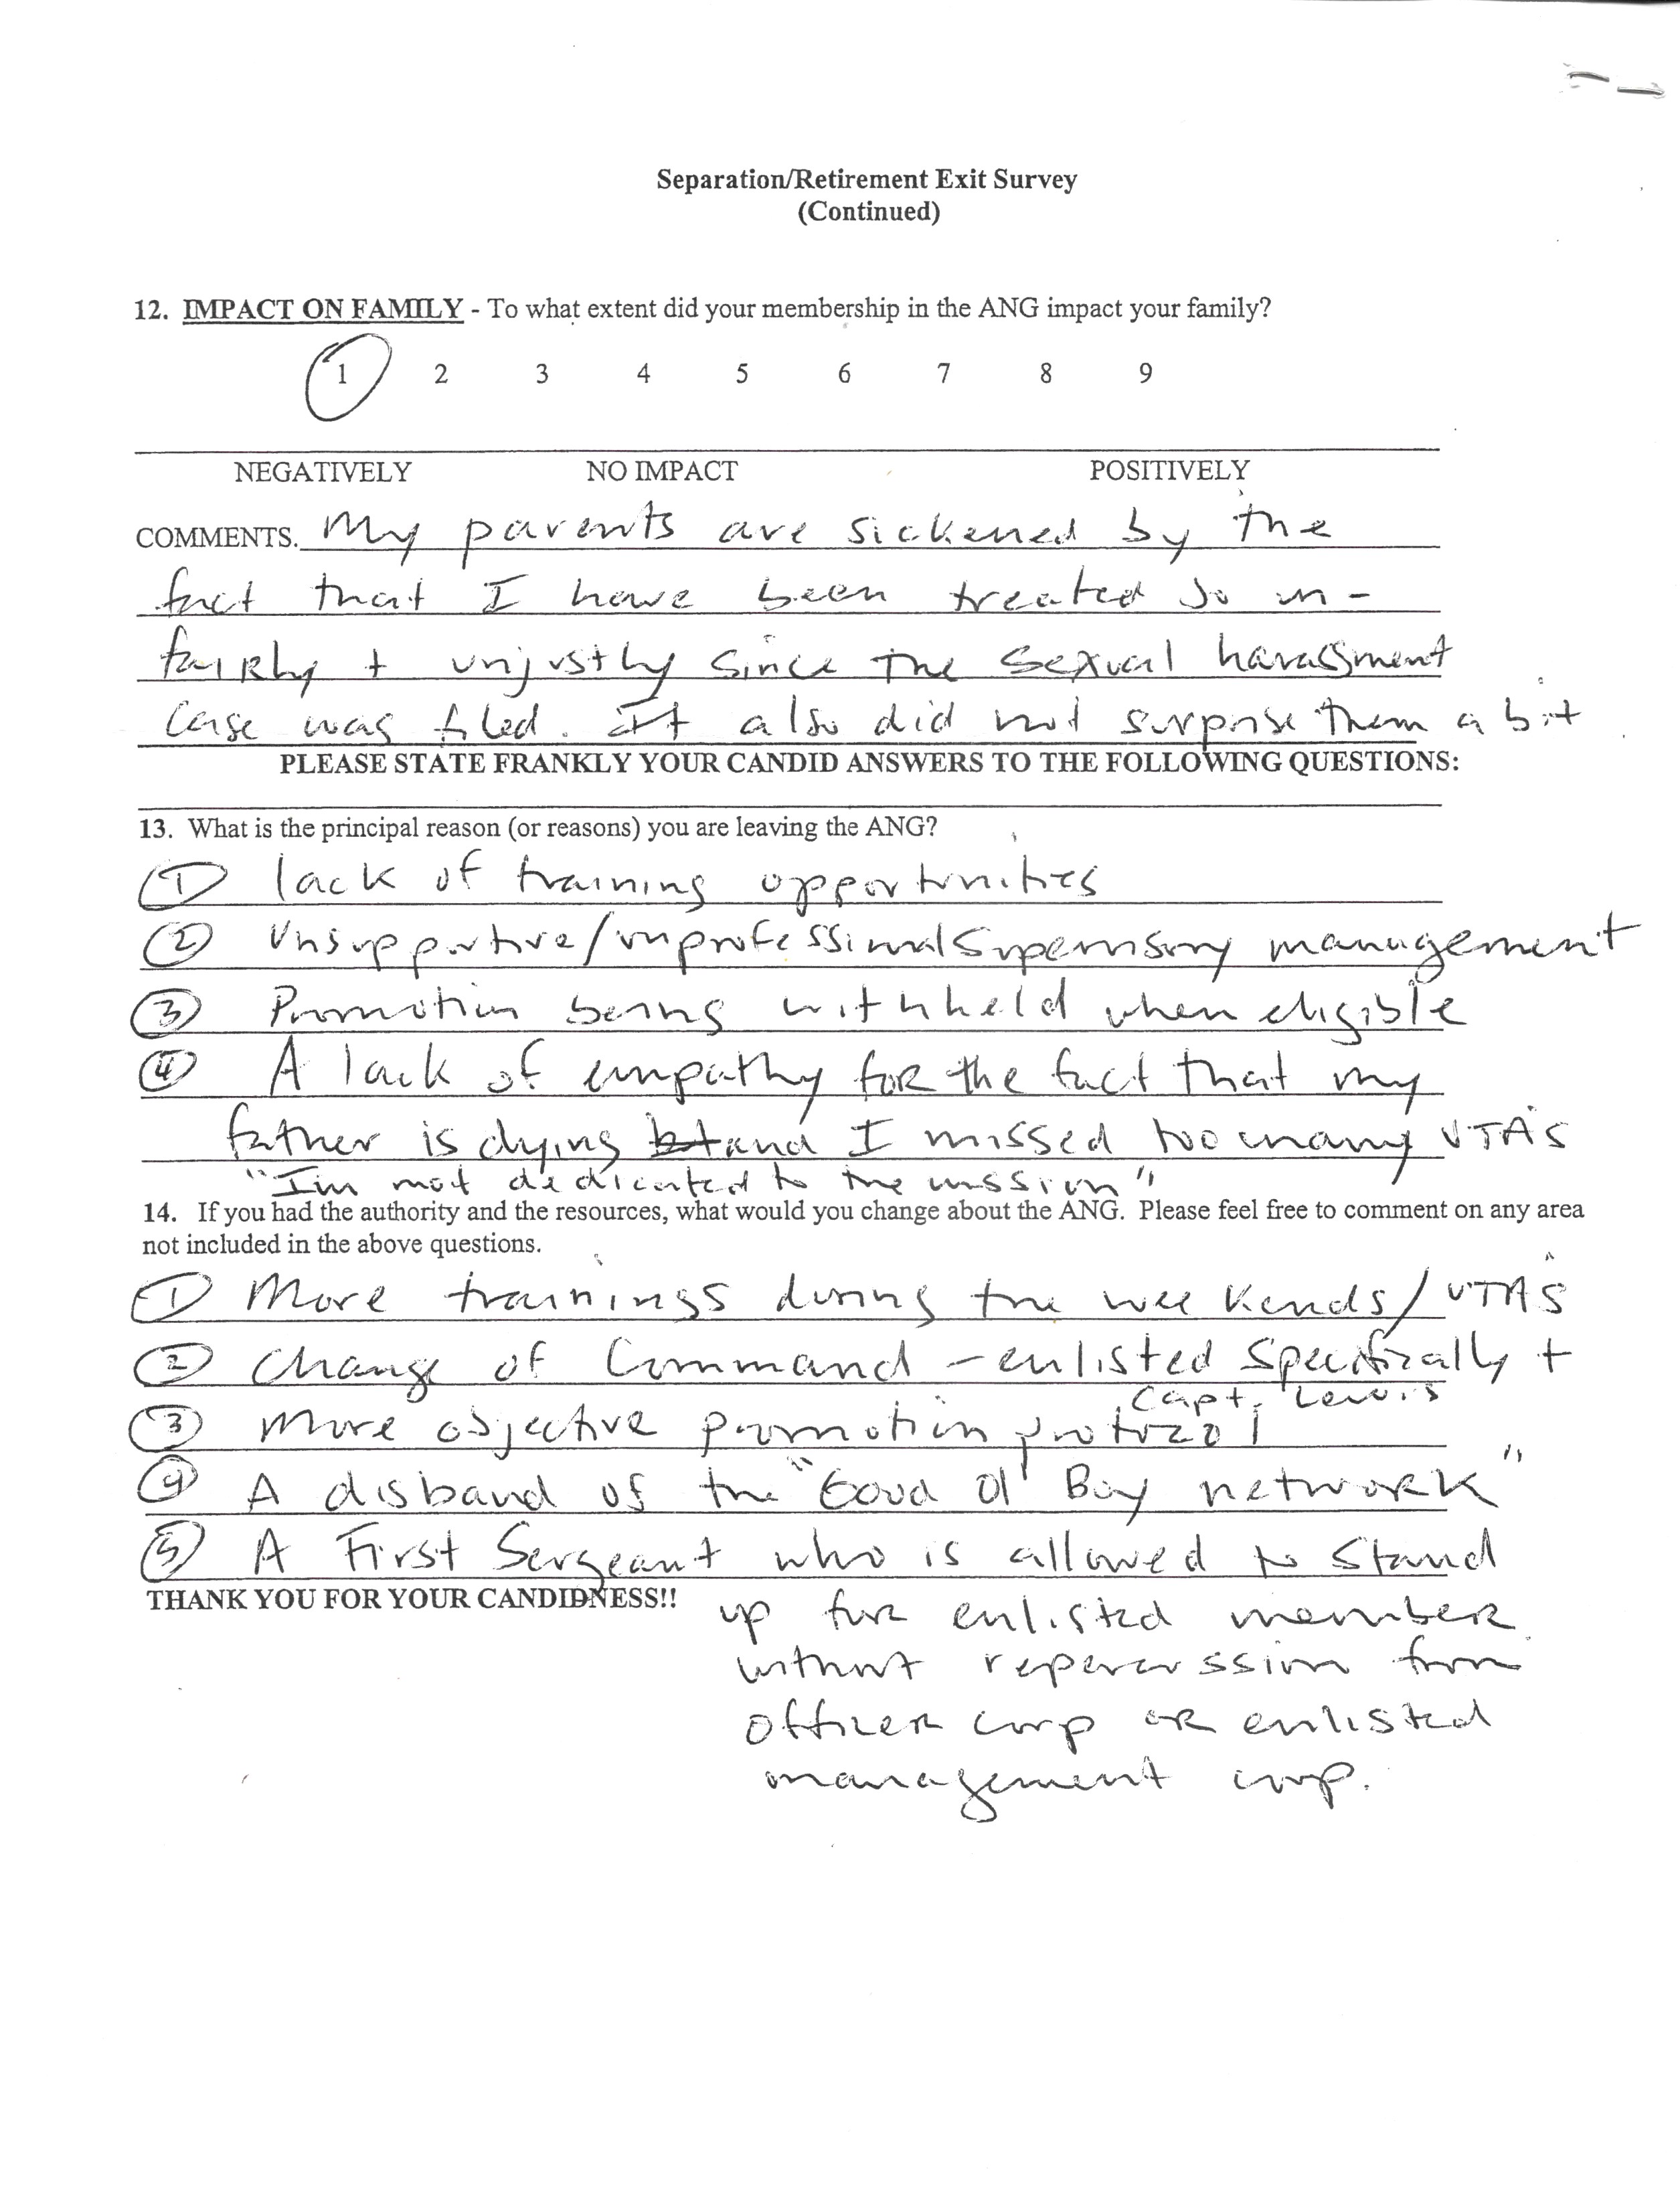 Separation/Retirement Exit Survey
(Continued)
12. IMPACT ON FAMILY - To what extent did your membership in the ANG impact your family?
1 2 3 4 5 6 7 8 9
NEGATIVELY NO IMPACT POSITIVELY
COMMENTS. My parents are sickened by the
fact that I have been treated so un-
faiRly + unjustly since the sexual harassment
case was filed. It also did not surprise them a bit
PLEASE STATE FRANKLY YOUR CANDID ANSWERS TO THE FOLLOWING QUESTIONS:
13. What is the principal reason (or reasons) you are leaving the ANG?
① lack of training opportunities
② Unsupportive/unprofessional Supervisory management
③ Promotion being withheld when eligible
④ A lack of empathy foR the fact that my
father is dying and I missed too many UTA's
"I'm not dedicated to the mission"
14. If you had the authority and the resources, what would you change about the ANG. Please feel free to comment on any area
not included in the above questions.
① More trainings during the weekends/UTA's
② Change of Command - enlisted specifically +
Capt. Lewis
③ More objective promotion protocol
④ A disband of the "Good Ol' Boy netwoRK"
⑤ A First Sergeant who is allowed to stand
THANK YOU FOR YOUR CANDIDNESS!!
up for enlisted membeR
without repercussion from
officeR corp oR enlisted
management corp.